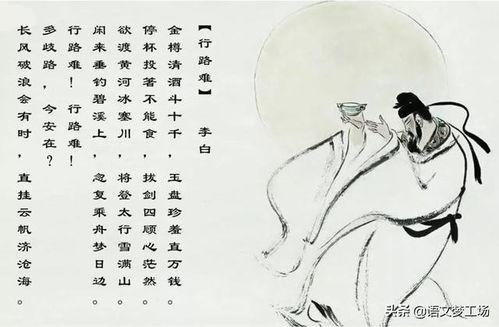 【行路难】 李白
金樽清酒斗十千，玉盘珍羞直万钱。
停杯投著不能食，拔剑四顾心茫然。
欲渡黄河冰塞川，将登太行雪满山。
闲来垂钓碧溪上，忽复乘舟梦日边。
行路难！行路难！
多歧路，今安在？
长风破浪会有时，直挂云帆济沧海。
头条 @语文梦工场